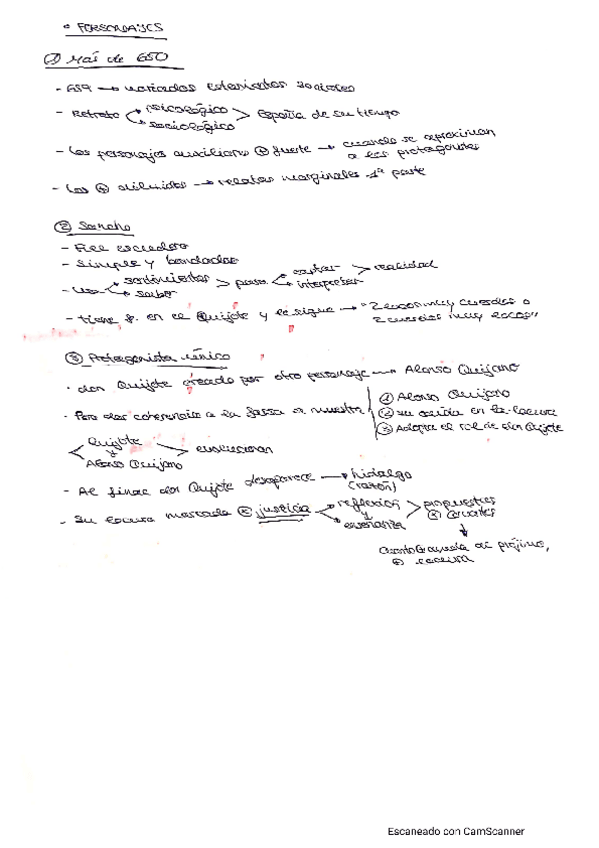 • PERSONAJES
① Más de 650
- 659 → variados estereotipos sociales
- Retrato psicológico sociológico > España de su tiempo
- Los personajes auxiliares ⊕ fuerte → cuando se aproximan a los protagonistas
- Los ⊕ → relatos marginales 1ª parte
② Sancho
- Fiel escudero
- Simple y bondadoso
- Usa sentimientos saber > para captar interpretar > realidad
- Tiene f. en el Quijote y le sigue → "2 locos muy cuerdos o 2 cuerdos muy locos"
③ Protagonista único
• don Quijote creado por otro personaje → Alonso Quijano
• Para dar coherencia a la farsa se muestra
① Alonso Quijano
② su caída en la locura
③ Adopta el rol de don Quijote
Quijote y Alonso Quijano > evolucionan
- Al final don Quijote desaparece → hidalgo (razón)
- Su locura marcada justicia reflexión y enseñanza > propuestas Cervantes
↓
Cuanto ayuda al prójimo, ⊕ locura
Escaneado con CamScanner